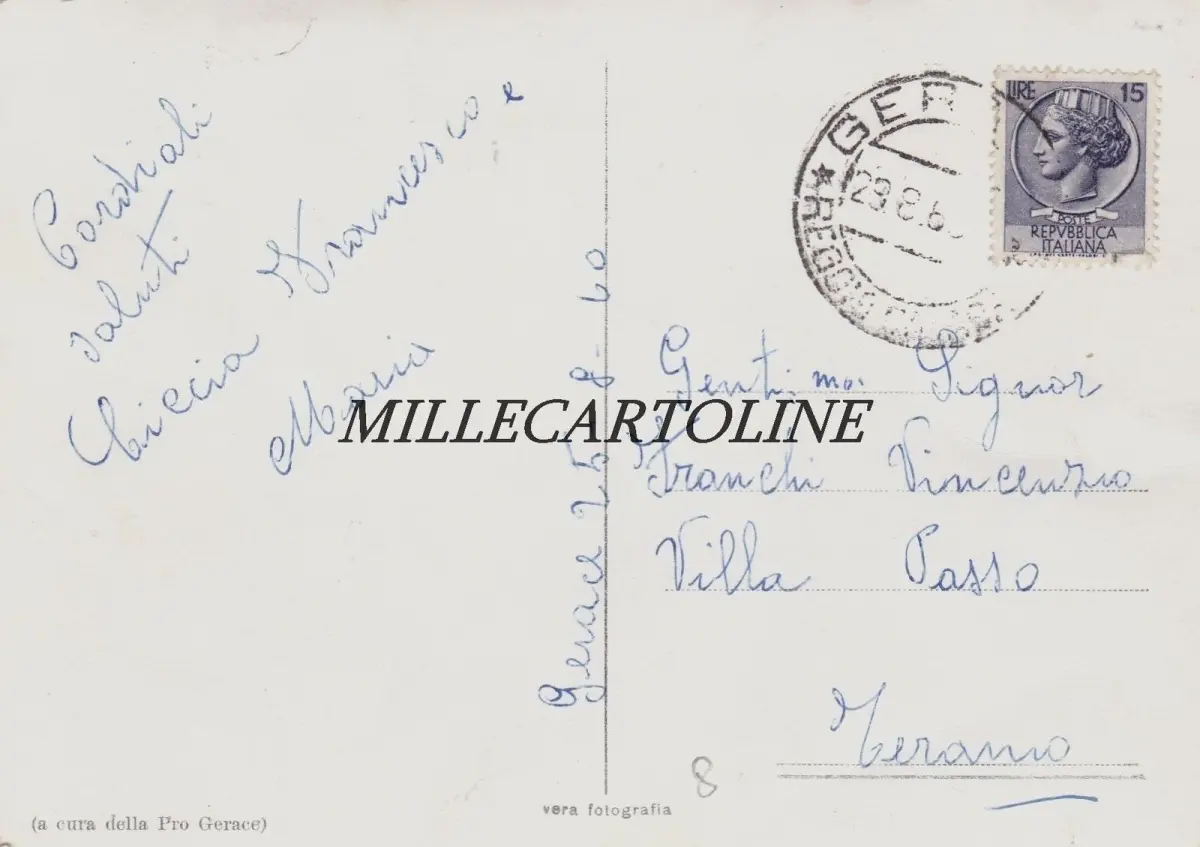 Cordiali
saluti
Ciccia Francesco e
Maria
Gerace 25-8-60
MILLECARTOLINE
GER
29.8.6
REGGIO
LIRE 15
POSTE
REPVBBLICA
ITALIANA
Genti.mo. Signor
Franchi Vincenzo
Villa Passo
Teramo
8
vera fotografia
(a cura della Pro Gerace)